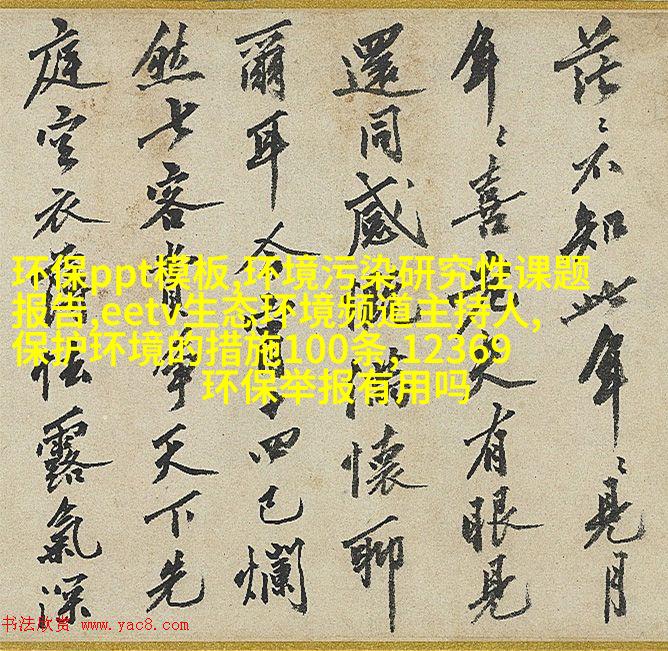 茫々不知此年々見月
年々喜有眼見
還同感慨滿懷聊
爾耳今宵十四已爛
然七客賞爭天下先
庭空衣薄怯露氣深
环保ppt模板,环境污染研究性课题
报告,eetv生态环境频道主持人,
保护环境的措施100条,12369
环保举报有用吗
书法欣赏 www.yac8.com